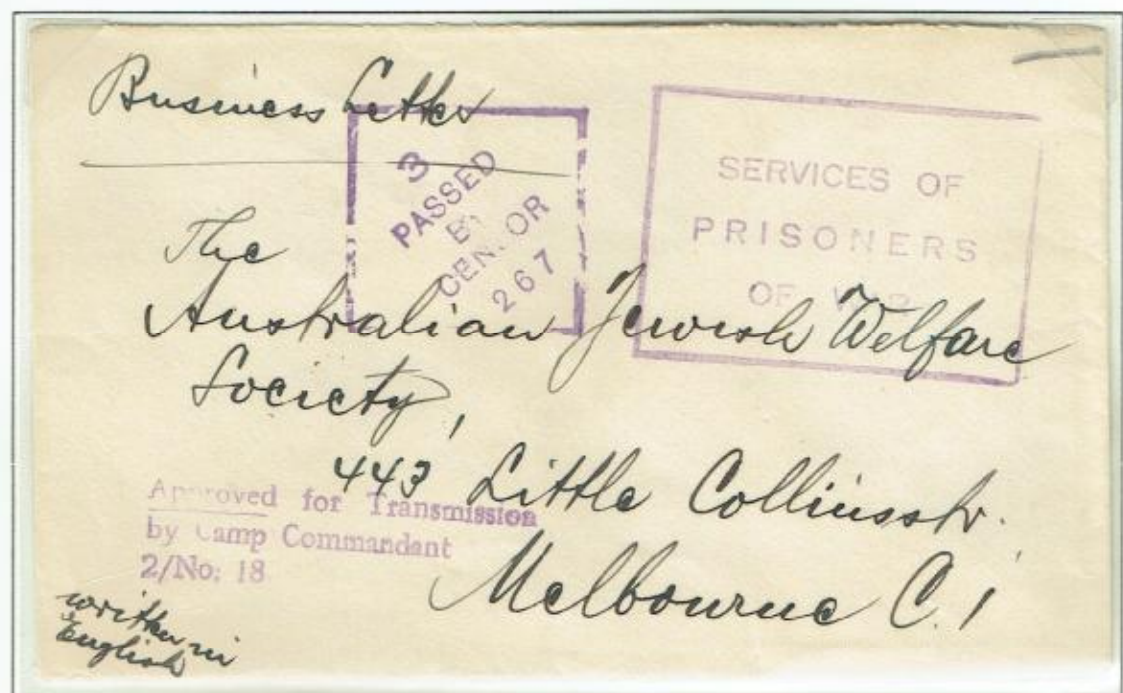 Business Letter
3
PASSED
BY
CENSOR
267
SERVICES OF
PRISONERS
OF WAR
The
Australian Jewish Welfare
Society,
443 Little Collinsstr.
Melbourne C.1
Approved for Transmission
by Camp Commandant
2/No: 18
written in
English